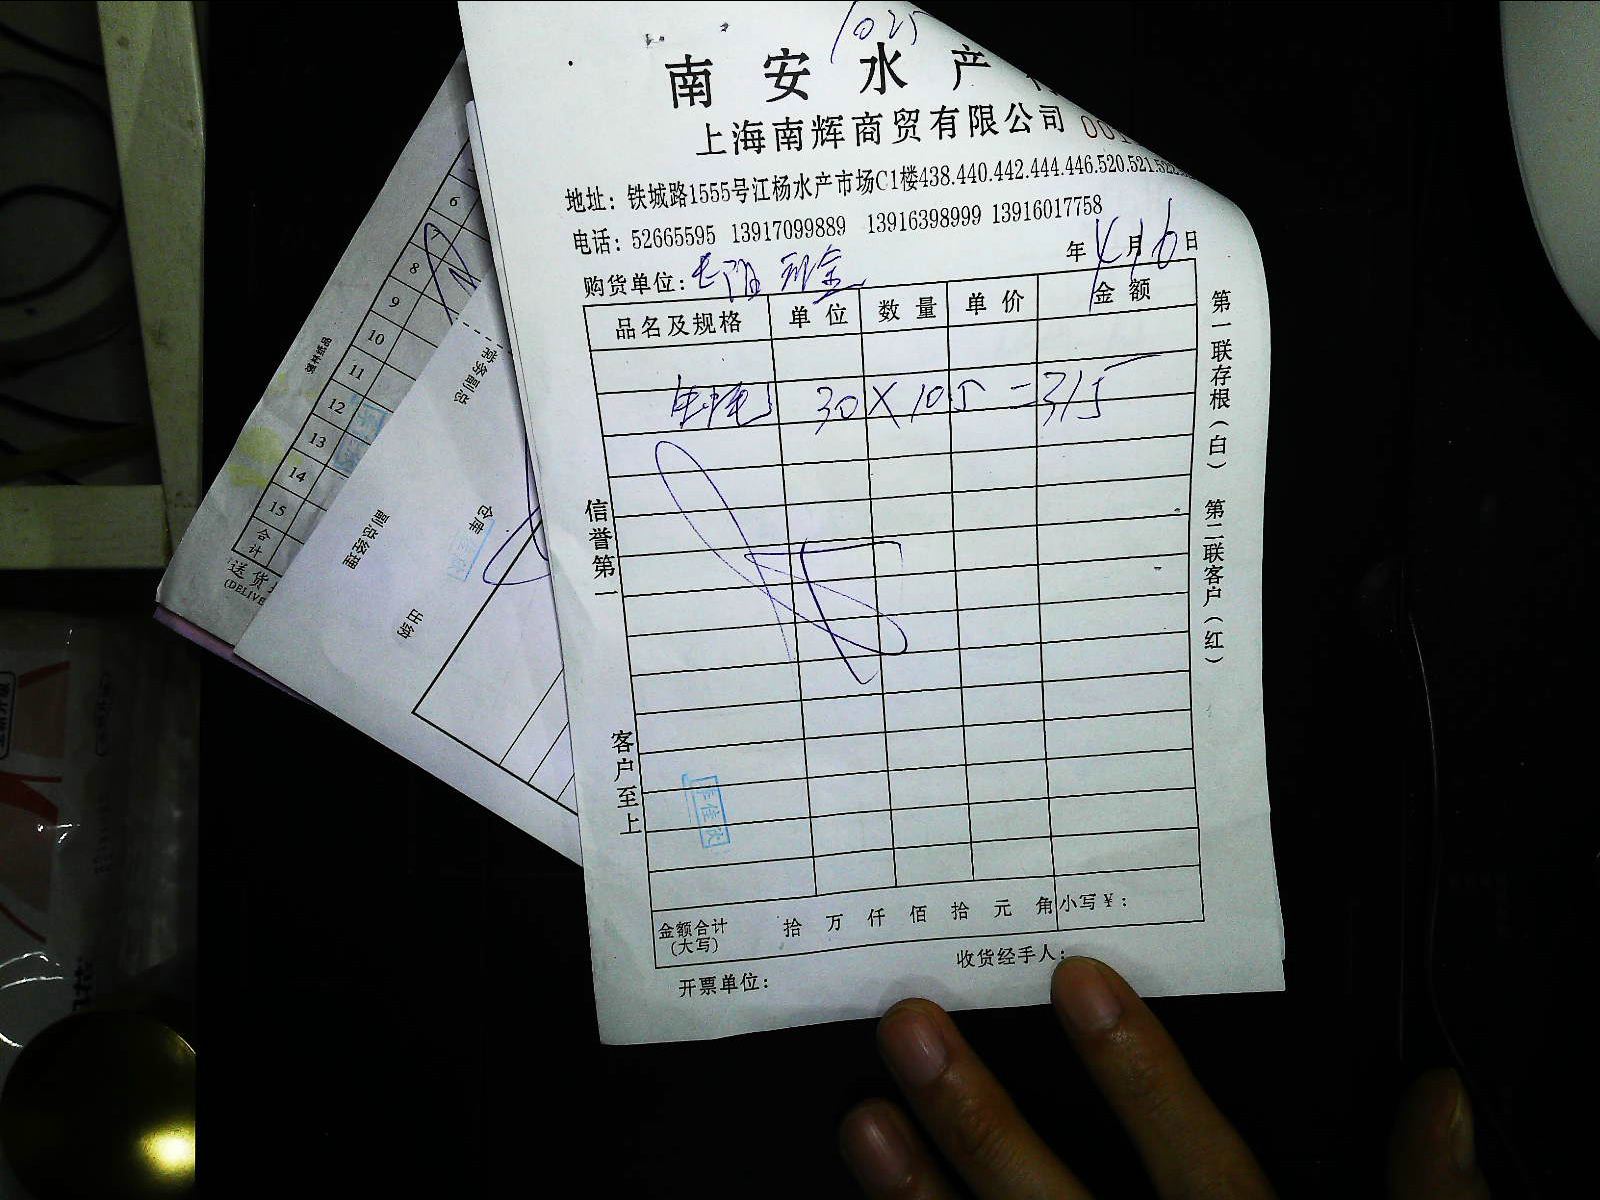 1025
南安水产
上海南辉商贸有限公司
地址：铁城路1555号江杨水产市场C1楼438.440.442.444.446.520.521.522
电话：52665595 13917099889 13916398999 13916017758
年4月16日
购货单位：
品名及规格 单位 数量 单价 金额
30 X 105 = 315
信誉第一
客户至上
第一联存根（白） 第二联客户（红）
金额合计（大写） 拾 万 仟 佰 拾 元 角 小写￥：
开票单位： 收货经手人：
6
8
9
10
11
12
13
14
15
合计
送货
(DELIVE
副总经理
出纳